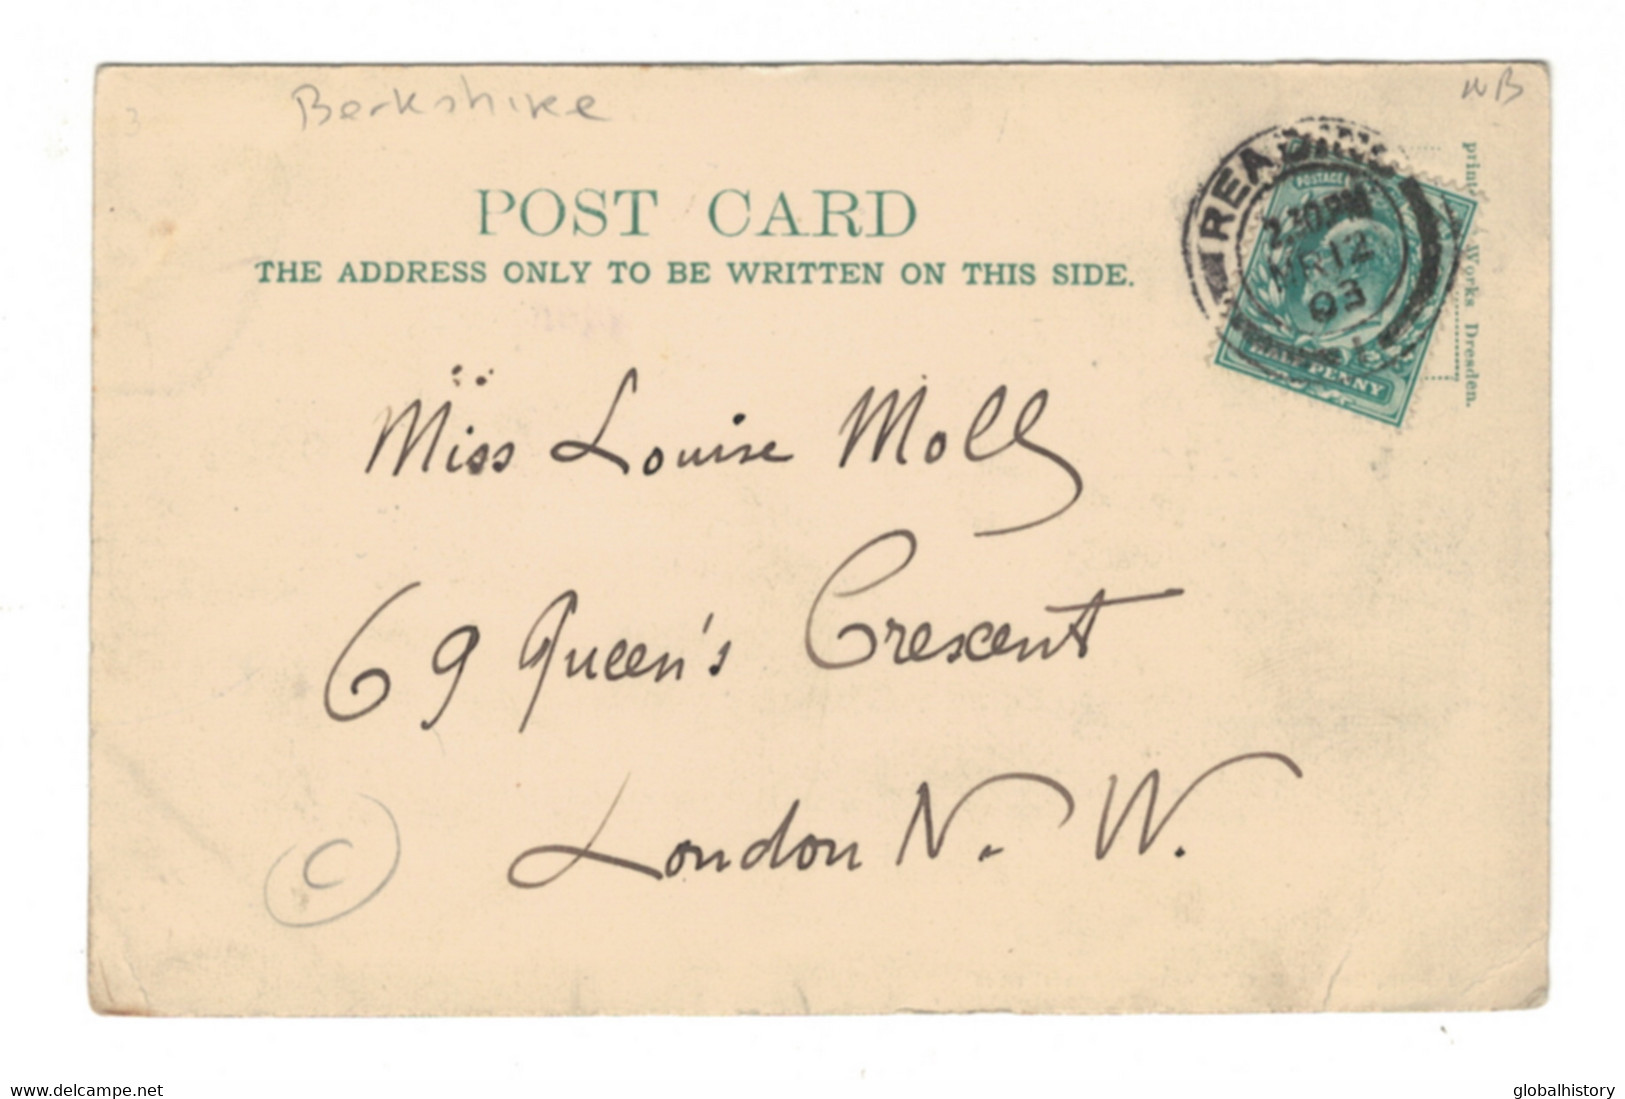 Berkshire
WB
POST CARD
THE ADDRESS ONLY TO BE WRITTEN ON THIS SIDE.
READING
2.30PM
MR 12
03
POSTAGE
HALF PENNY
Works Dresden.
Miss Louise Moll
69 Queen's Crescent
London N. W.
C
www.delcampe.net
globalhistory